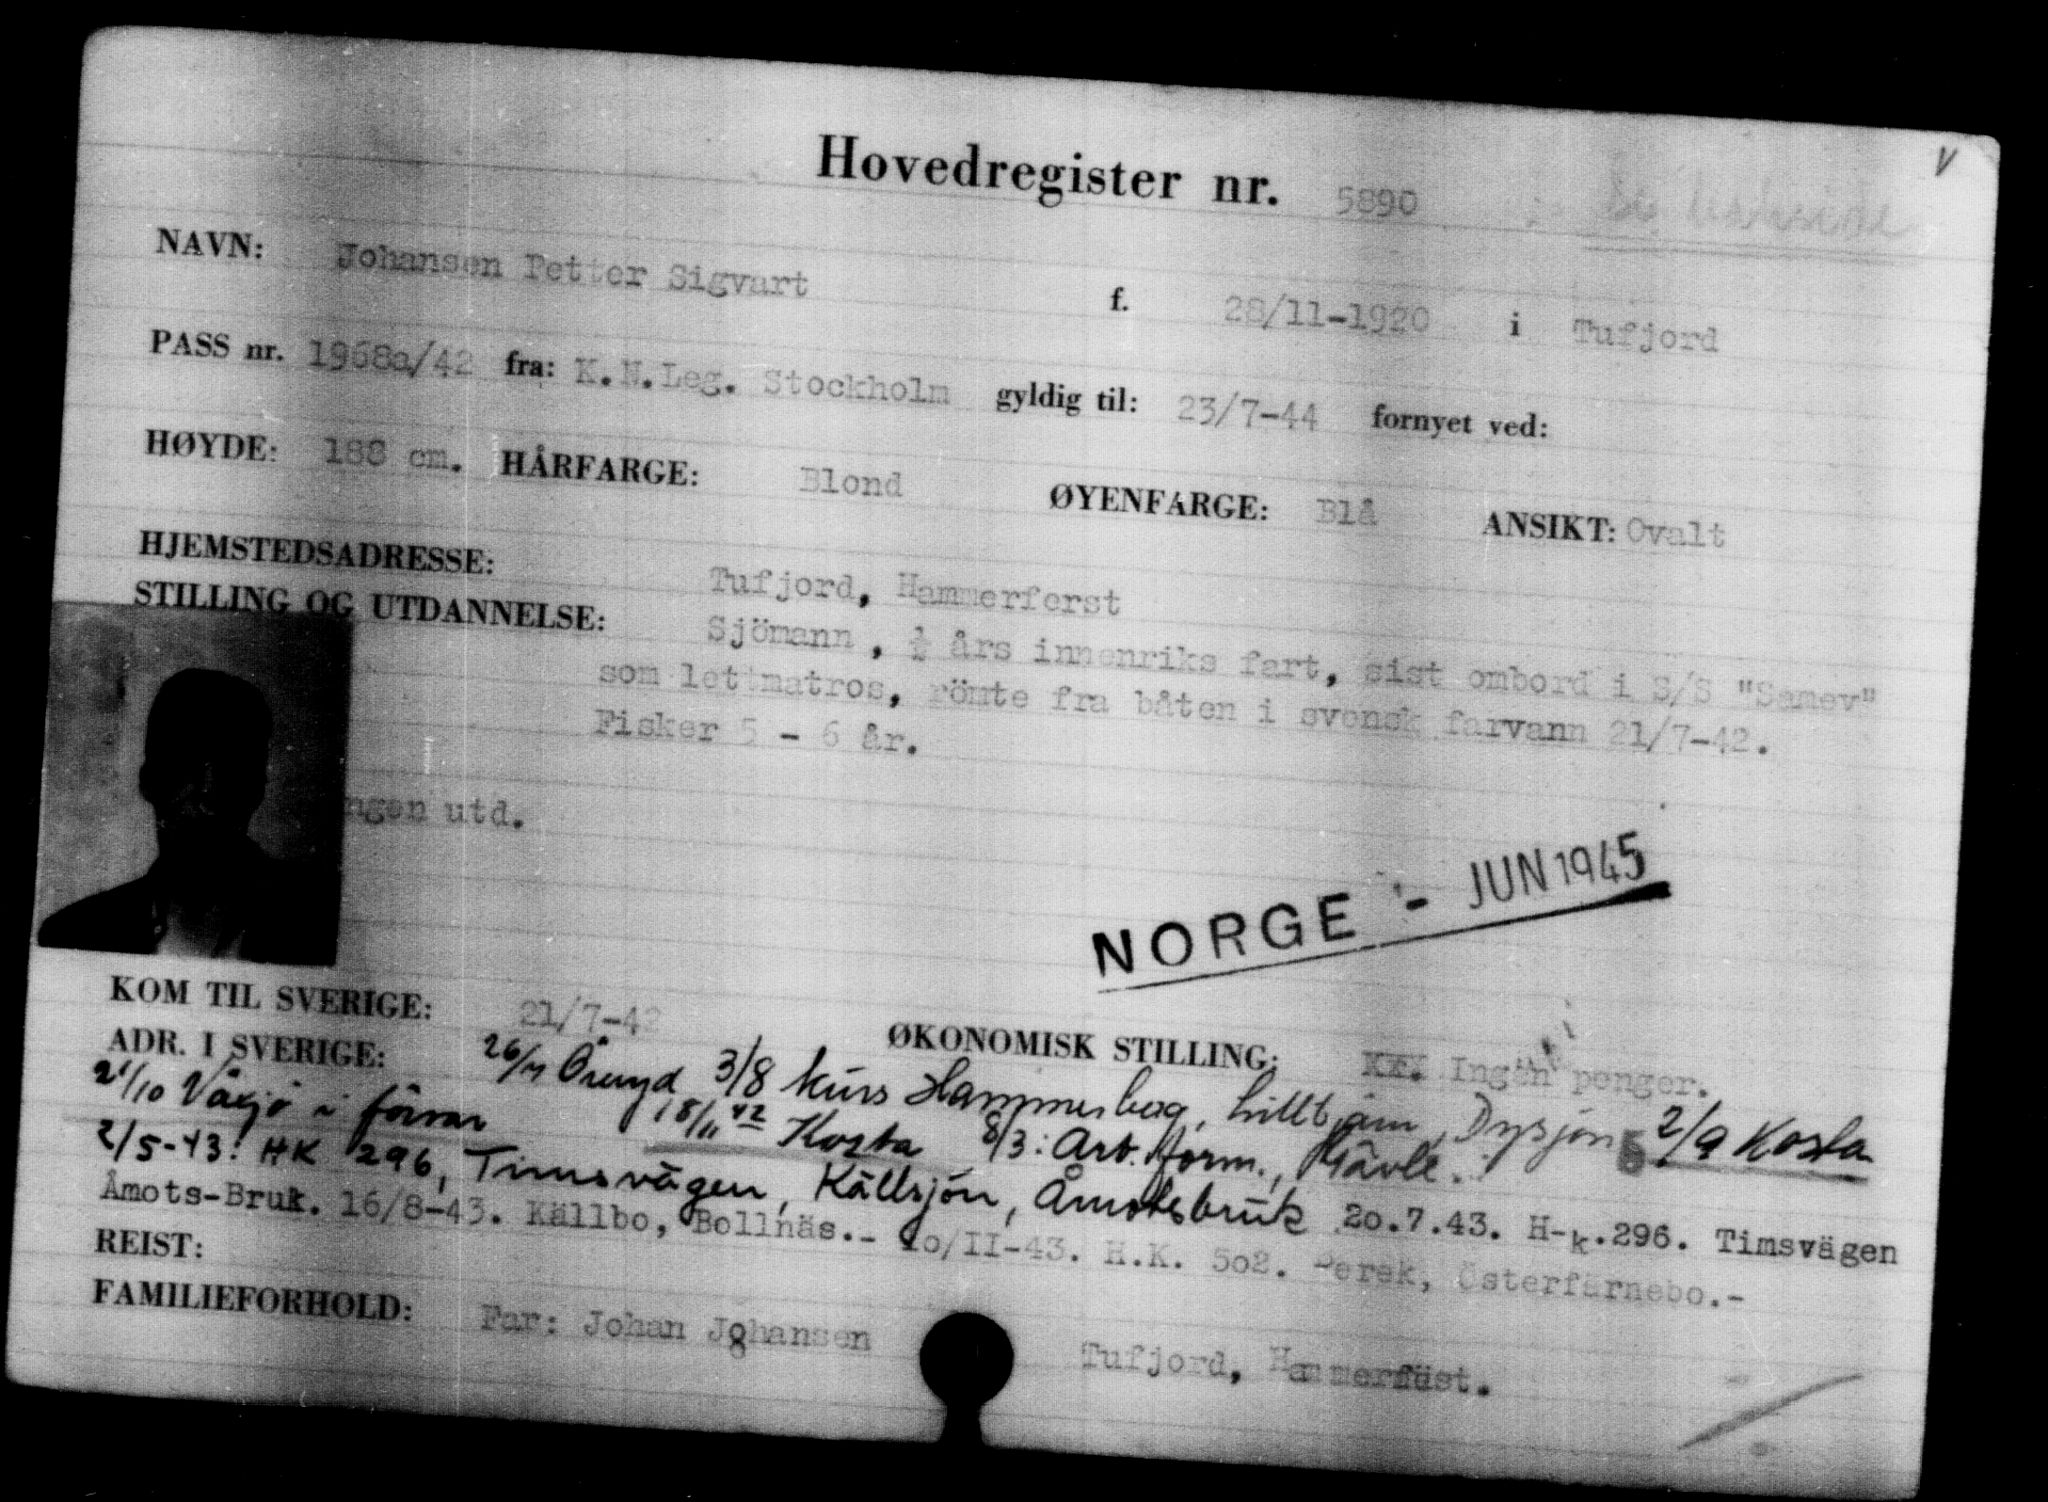 V
Hovedregister nr. 5890
NAVN: Johansen Petter Sigvart f. 28/11-1920 i Tufjord
PASS nr. 1968a/42 fra: K.N.Leg. Stockholm gyldig til: 23/7-44 fornyet ved:
HØYDE: 188 cm. HÅRFARGE: Blond ØYENFARGE: Blå ANSIKT: Ovalt
HJEMSTEDSADRESSE: Tufjord, Hammerferst
STILLING OG UTDANNELSE: Sjömann, ½ års innenriks fart, sist ombord i S/S "Samev"
som lettmatros, römte fra båten i svensk farvann 21/7-42.
Fisker 5 - 6 år.
ngen utd.
NORGE - JUN 1945
KOM TIL SVERIGE: 21/7-42 ØKONOMISK STILLING: Ingen penger.
ADR. I SVERIGE: 26/7 Öreryd 3/8 kurs Hammerbog, hilltjärn, Dysjön 2/9 Kosta
21/10 Växjö i förvar 18/11 42 Kosta 8/3: Arb. form., Gävle.
2/5-43: HK 296, Timsvägen, Källsjön, Åmotsbruk 20.7.43. H-k.296. Timsvägen
Åmots-Bruk. 16/8-43. Källbo, Bollnäs.- 10/II-43. H.K. 502. Berek, Österfärnebo.-
REIST:
FAMILIEFORHOLD: Far: Johan Johansen Tufjord, Hammerfest.